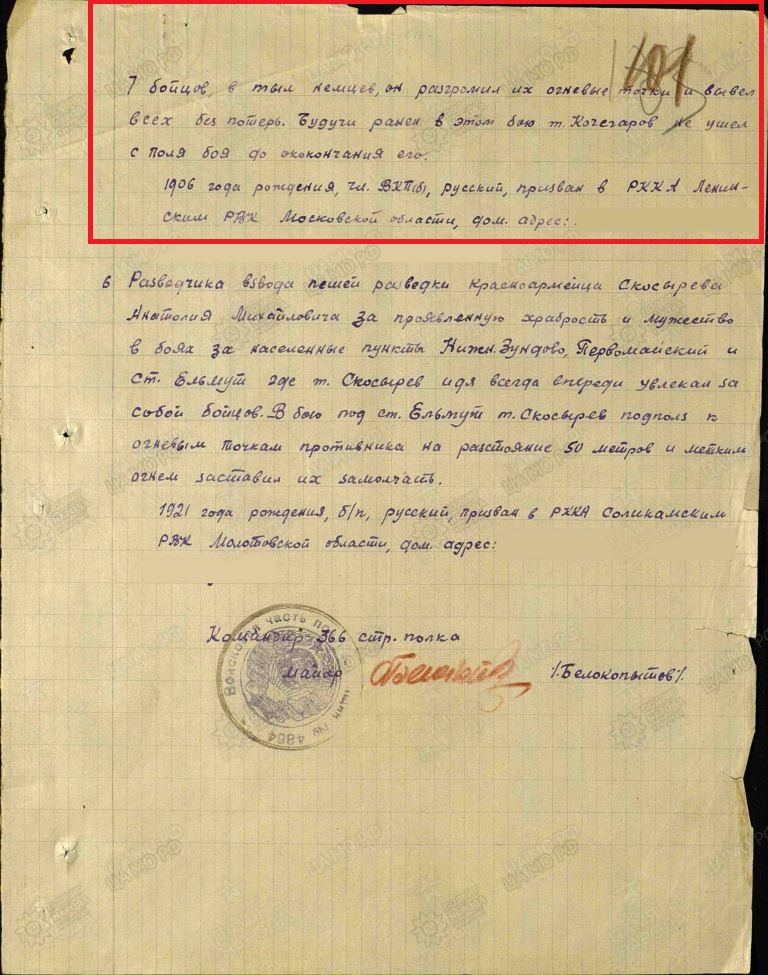 101
7 бойцов, в тыл немцев, он разгромил их огневые точки и вывел
всех без потерь. Будучи ранен в этом бою т. Кочегаров не ушел
с поля боя до ококончания его.
1906 года рождения, чл. ВКП(б), русский, призван в РККА Ленин-
ским РВК Московской области, дом. адрес:
6 Разведчика взвода пешей разведки Красноармейца Скосырева
Анатолия Михайловича за проявленную храбрость и мужество
в боях за населенные пункты Нижн. Зундово, Первомайский и
ст. Ельмут где т. Скосырев идя всегда впереди увлекал за
собой бойцов. В бою под ст. Ельмут т. Скосырев подполз к
огневым точкам противника на разстояние 50 метров и метким
огнем заставил их замолчать.
1921 года рождения, б/п, русский, призван в РККА Соликамским
РВК Молотовской области, дом. адрес:
Командир 366 стр. полка
майор
/.Белокопытов/.
Войсковая часть № 4864